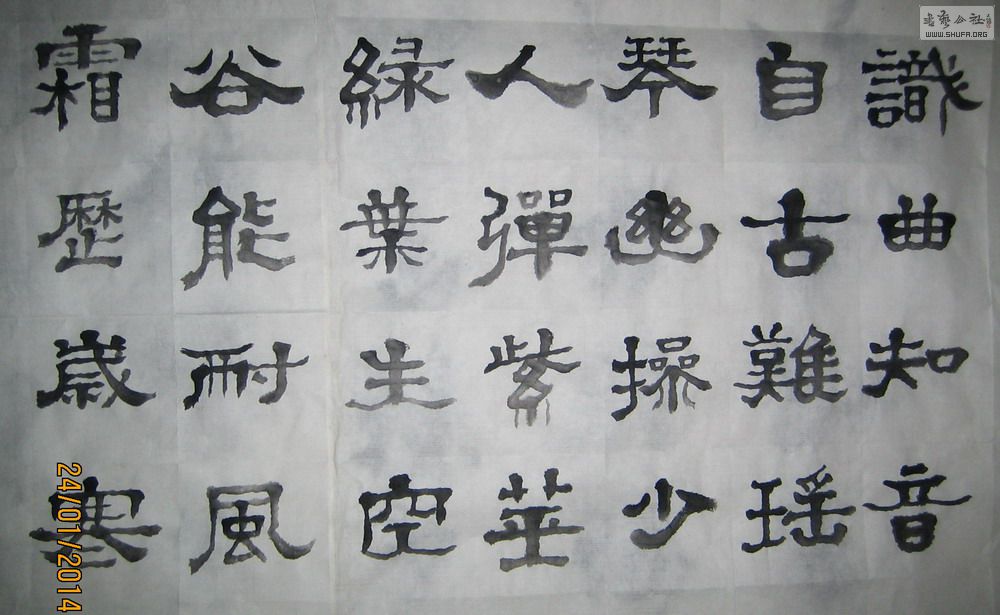 識曲知音
自古難瑶
琴幽操少
人彈紫莖
緑葉生空
谷能耐風
霜歷歲寒
书艺公社
WWW.SHUFA.ORG
24/01/2014